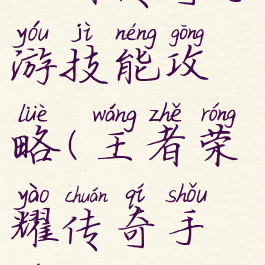 yóu jì néng gōng
游技能攻
lüè wáng zhě róng
略(王者荣
yào chuán qí shǒu
耀传奇手